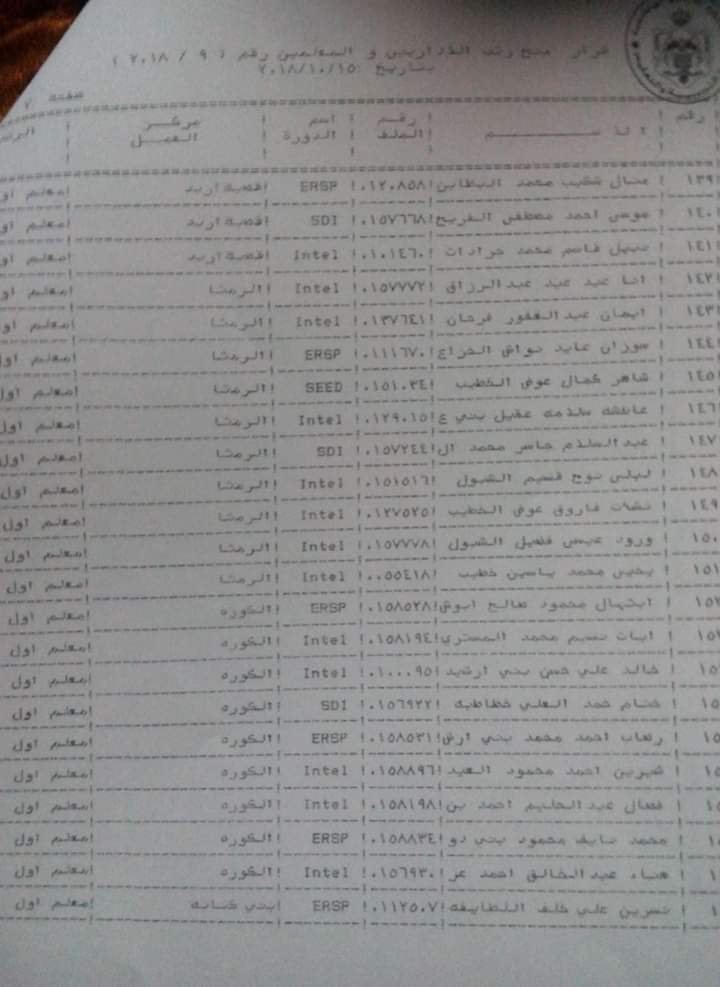 قرار منح رتب الاداريين و المعلمين رقم ( ٩ / ٢٠١٨ )
بتاريخ ٢٠١٨/١٠/١٥
صفحة ٧
رقم ! الاســـــــــم ! رقم الملف ! اسم الدورة ! مركز العمل
١٣٩ ! منال شكيب محمد البطاين !٠١٢٠٨٥٨! ERSP !قصبة اربد !معلم اول
١٤٠ ! موسى احمد مصطفى الفريح !٠١٥٧٦٦٨! SDI !قصبة اربد !معلم اول
١٤١ ! نبيل قاسم محمد جرادات !٠١٠١٤٦٠! Intel !قصبة اربد !معلم اول
١٤٢ ! عيد عبد الرزاق !٠١٥٧٧٧٢! Intel !الرمثا !معلم اول
١٤٣ ! ايمان عبد الغفور فرحان !٠١٣٧٦٤١! Intel !الرمثا !معلم اول
١٤٤ ! سوزان عايد نواش الخزاع !٠١١١٦٧٠! ERSP !الرمثا !معلم اول
١٤٥ ! شاهر كمال عوض الخطيب !٠١٥١٠٣٤! SEED !الرمثا !معلم اول
١٤٦ ! عائشه سلامه عقيل بني ع !٠١٢٩٠١٥! Intel !الرمثا !معلم اول
١٤٧ ! عبد السلام جاسر محمد ال !٠١٥٧٢٤٤! SDI !الرمثا !معلم اول
١٤٨ ! ليلى نوح قسيم الشبول !٠١٥١٥١٦! Intel !الرمثا !معلم اول
١٤٩ ! نشات فاروق عوض الخطيب !٠١٢٧٥٢٥! Intel !الرمثا !معلم اول
١٥٠ ! ورود عيسى فضيل الشبول !٠١٥٧٧٧٨! Intel !الرمثا !معلم اول
١٥١ ! يحيى محمد ياسين خطيب !٠٠٥٥٤١٨! Intel !الرمثا !معلم اول
١٥٢ ! ابتهال محمود صالح ابوش !٠١٥٨٥٢٨! ERSP !الكوره !معلم اول
١٥ ! ايات نسيم محمد المستري !٠١٥٨١٩٤! Intel !الكوره !معلم اول
١٥ ! خالد علي حسن بني ارشيد !٠١٠٠٠٩٥! Intel !الكوره !معلم اول
١٥ ! ختام حمد العلي خطاطبه !٠١٥٦٩٢٢! SDI !الكوره !معلم اول
١٥ ! رحاب احمد محمد بني ارش !٠١٥٨٥٣١! ERSP !الكوره !معلم اول
١٥ ! شيرين احمد محمود العيد !٠١٥٨٨٩٦! Intel !الكوره !معلم اول
١٥ ! عبد الحليم احمد بن !٠١٥٨١٩٨! Intel !الكوره !معلم اول
١ ! محمد نايف محمود بني دو !٠١٥٨٨٣٤! ERSP !الكوره !معلم اول
١ ! هناء عبد الخالق احمد عر !٠١٥٦٩٣٠! Intel !الكوره !معلم اول
١ ! نسرين علي خلف اللطايفه !٠١١٢٥٠٧! ERSP !بني كنانه !معلم اول